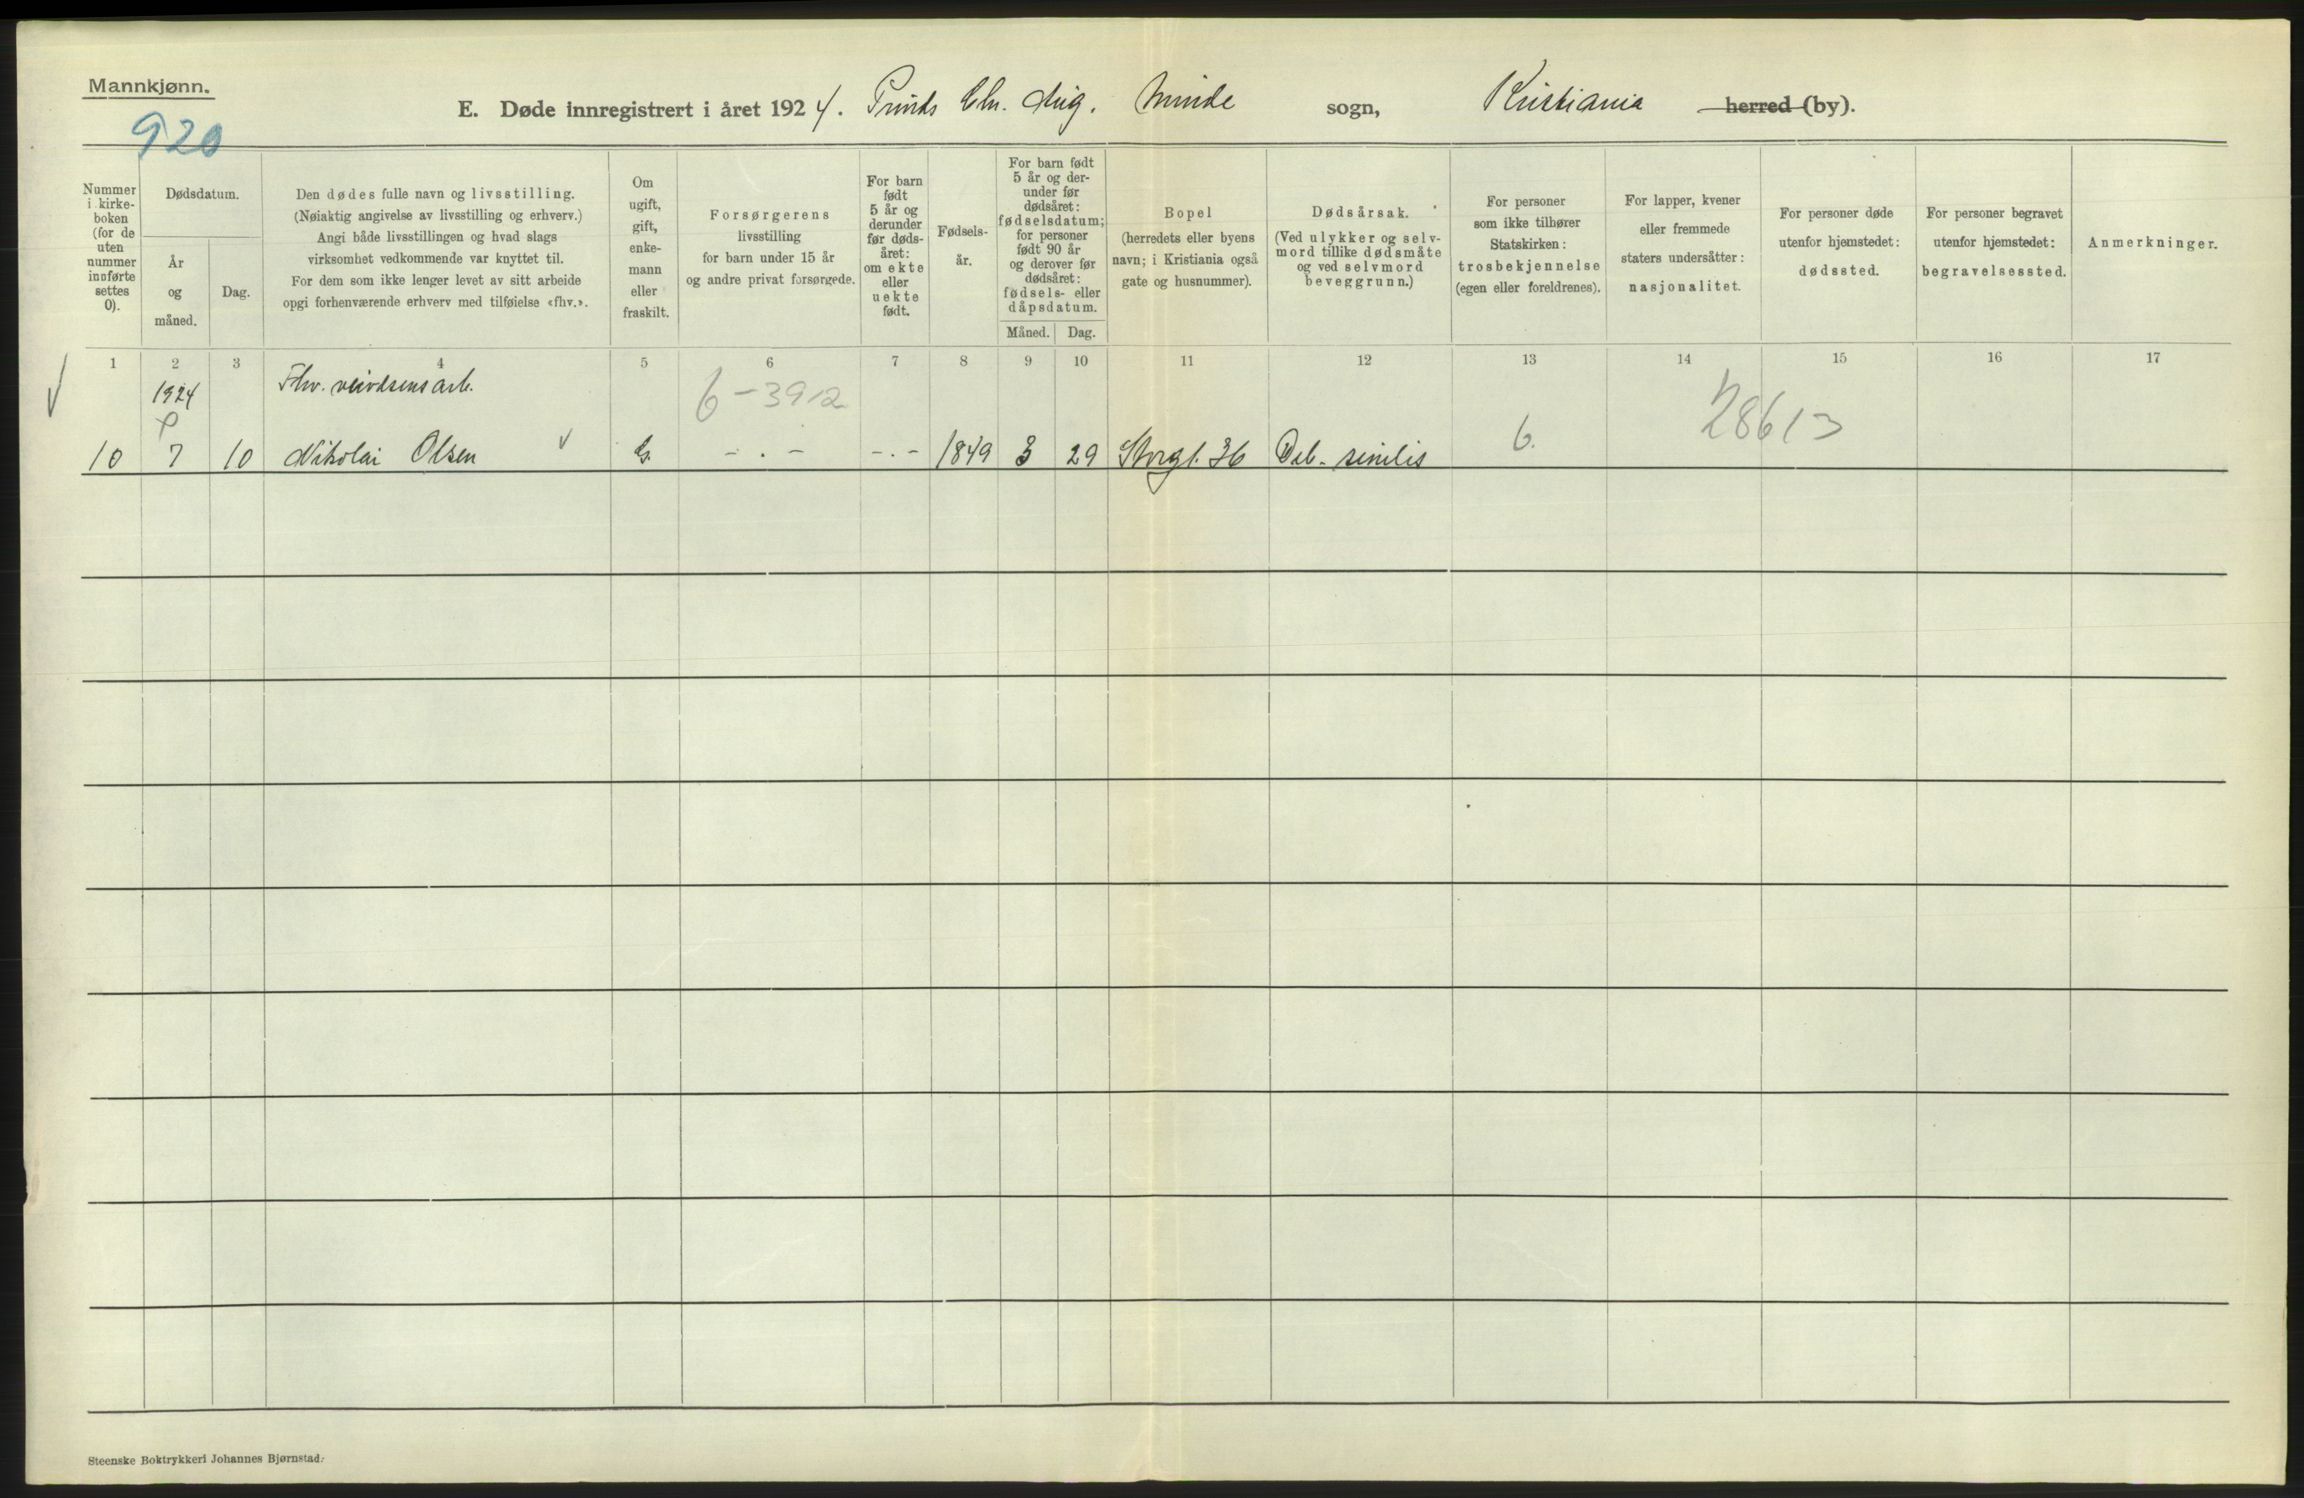 Mannkjønn.
920
E. Døde innregistrert i året 1924. Prinds Chr. Aug. Minde sogn, Kristiania herred (by).
Nummer i kirke-boken (for de uten nummer innførte settes 0).
Dødsdatum.
År og måned.
Dag.
Den dødes fulle navn og livsstilling.
(Nøiaktig angivelse av livsstilling og erhverv.)
Angi både livsstillingen og hvad slags
virksomhet vedkommende var knyttet til.
For dem som ikke lenger levet av sitt arbeide
opgi forhenværende erhverv med tilføielse «fhv.».
Om
ugift,
gift,
enke-
mann
eller
fraskilt.
Forsørgerens
livsstilling
for barn under 15 år
og andre privat forsørgede.
For barn
født
5 år og
derunder
før døds-
året:
om ekte
eller
uekte
født.
Fødsels-
år.
For barn født
5 år og der-
under før
dødsåret:
fødselsdatum;
for personer
født 90 år
og derover før
dødsåret:
fødsels- eller
dåpsdatum.
Måned. Dag.
Bopel
(herredets eller byens
navn; i Kristiania også
gate og husnummer).
Dødsårsak.
(Ved ulykker og selv-
mord tillike dødsmåte
og ved selvmord
beveggrunn.)
For personer
som ikke tilhører
Statskirken:
trosbekjennelse
(egen eller foreldrenes).
For lapper, kvener
eller fremmede
staters undersåtter:
nasjonalitet.
For personer døde
utenfor hjemstedet:
dødssted.
For personer begravet
utenfor hjemstedet:
begravelsessted.
Anmerkninger.
1 2 3 4 5 6 7 8 9 10 11 12 13 14 15 16 17
1924 Fhv. arb. 6-3912 28613
10 7 10 Nikolai Olsen G. - . - - . - 1849 3 29 Storgt. 36 Deb. senilis 6.
Steenske Boktrykkeri Johannes Bjørnstad.